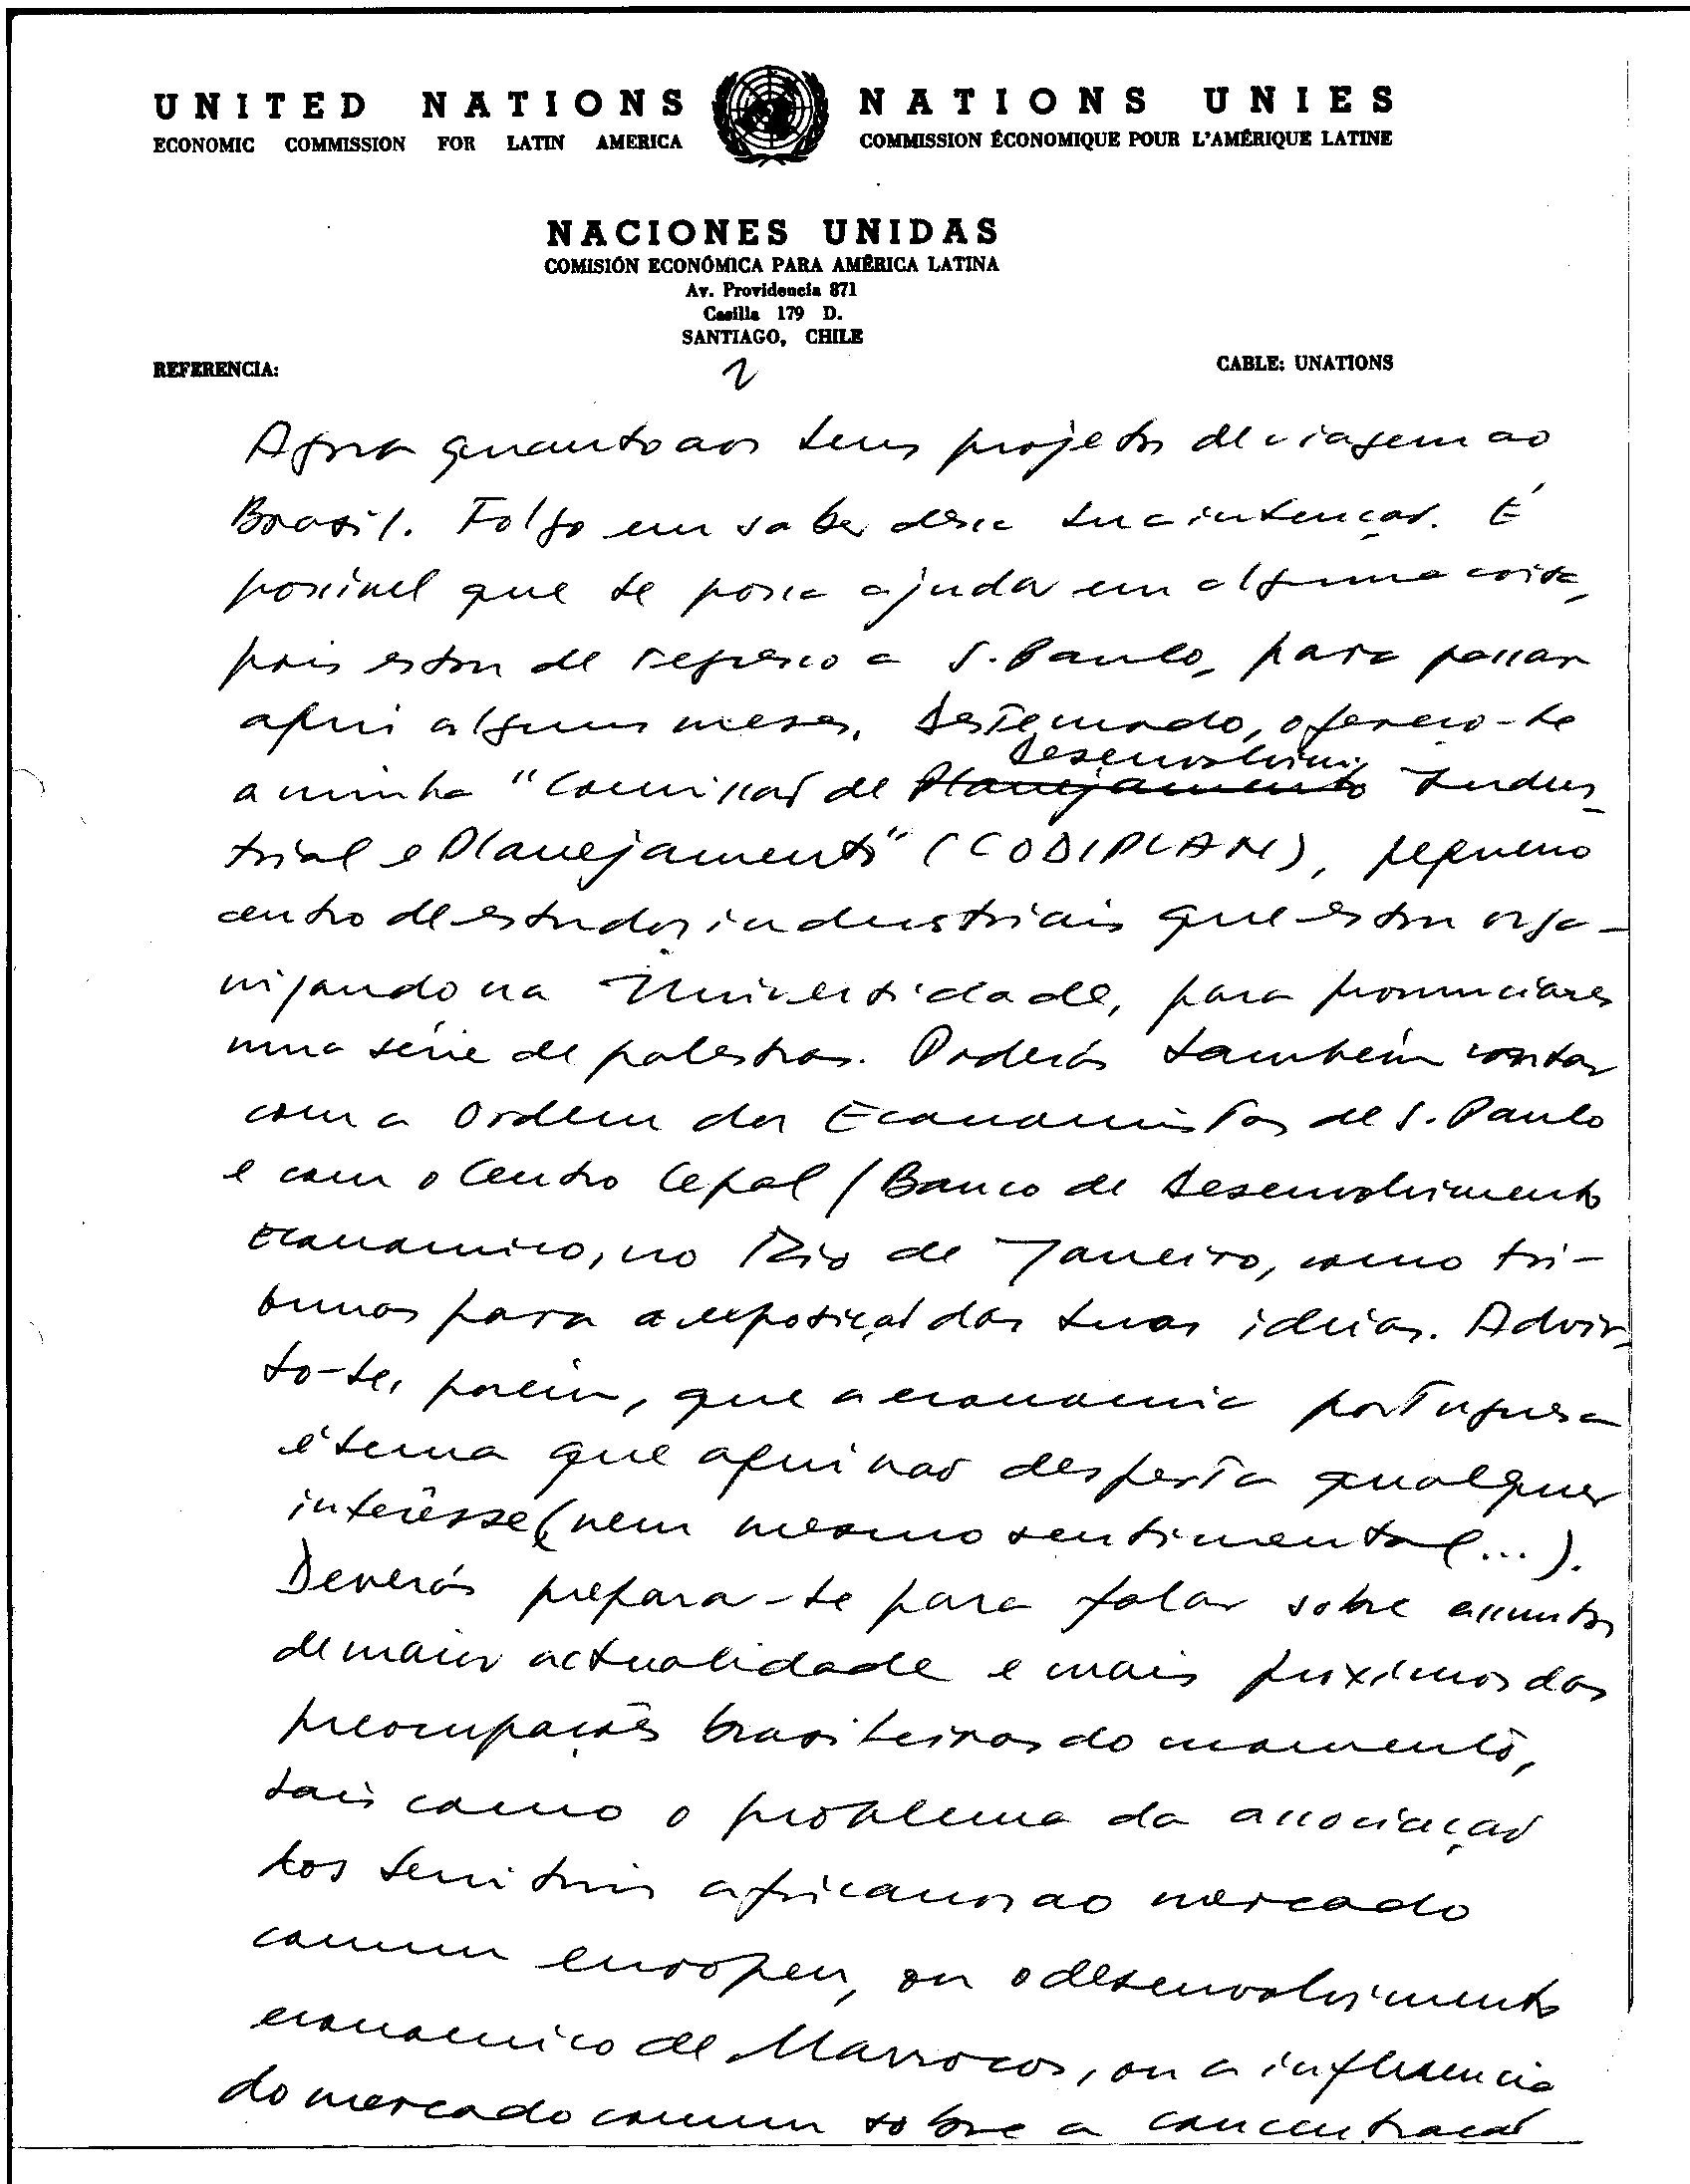 UNITED NATIONS NATIONS UNIES
ECONOMIC COMMISSION FOR LATIN AMERICA COMMISSION ÉCONOMIQUE POUR L'AMÉRIQUE LATINE
NACIONES UNIDAS
COMISIÓN ECONÓMICA PARA AMÉRICA LATINA
Av. Providencia 871
Casilla 179 D.
SANTIAGO, CHILE
REFERENCIA: CABLE: UNATIONS
2
Agora quanto aos teus projetos de viagem ao
Brasil. Folgo em saber dessa tua intenção. É
possivel que te possa ajudar em alguma coisa,
pois estou de regresso a S. Paulo, para passar
aqui alguns meses. Destemodo, ofereço-te
Desenvolvim.
a minha "Comissão de Planejamento Indus-
trial e Planejamento" (CODIPLAN), pequeno
centro de estudos industriais que estou orga-
nizando na Universidade, para pronunciares
uma série de palestras. Poderás também contar
com a Ordem dos Economistas de S. Paulo
e com o Centro Cepal / Banco de Desenvolvimento
Economico, no Rio de Janeiro, como tri-
bunas para a exposição das tuas idéias. Advir-
to-te, porém, que a economia portuguesa
é tema que aqui não desperta qualquer
interêsse (nem mesmo sentimental...).
Deverás prepara-te para falar sobre assuntos
de maior actualidade e mais próximos das
preocupações brasileiras do momento,
tais como o problema da associação
dos territórios africanos ao mercado
comum europeu, ou o desenvolvimento
economico de Marrocos, ou a influencia
do mercado comum sobre a concentração